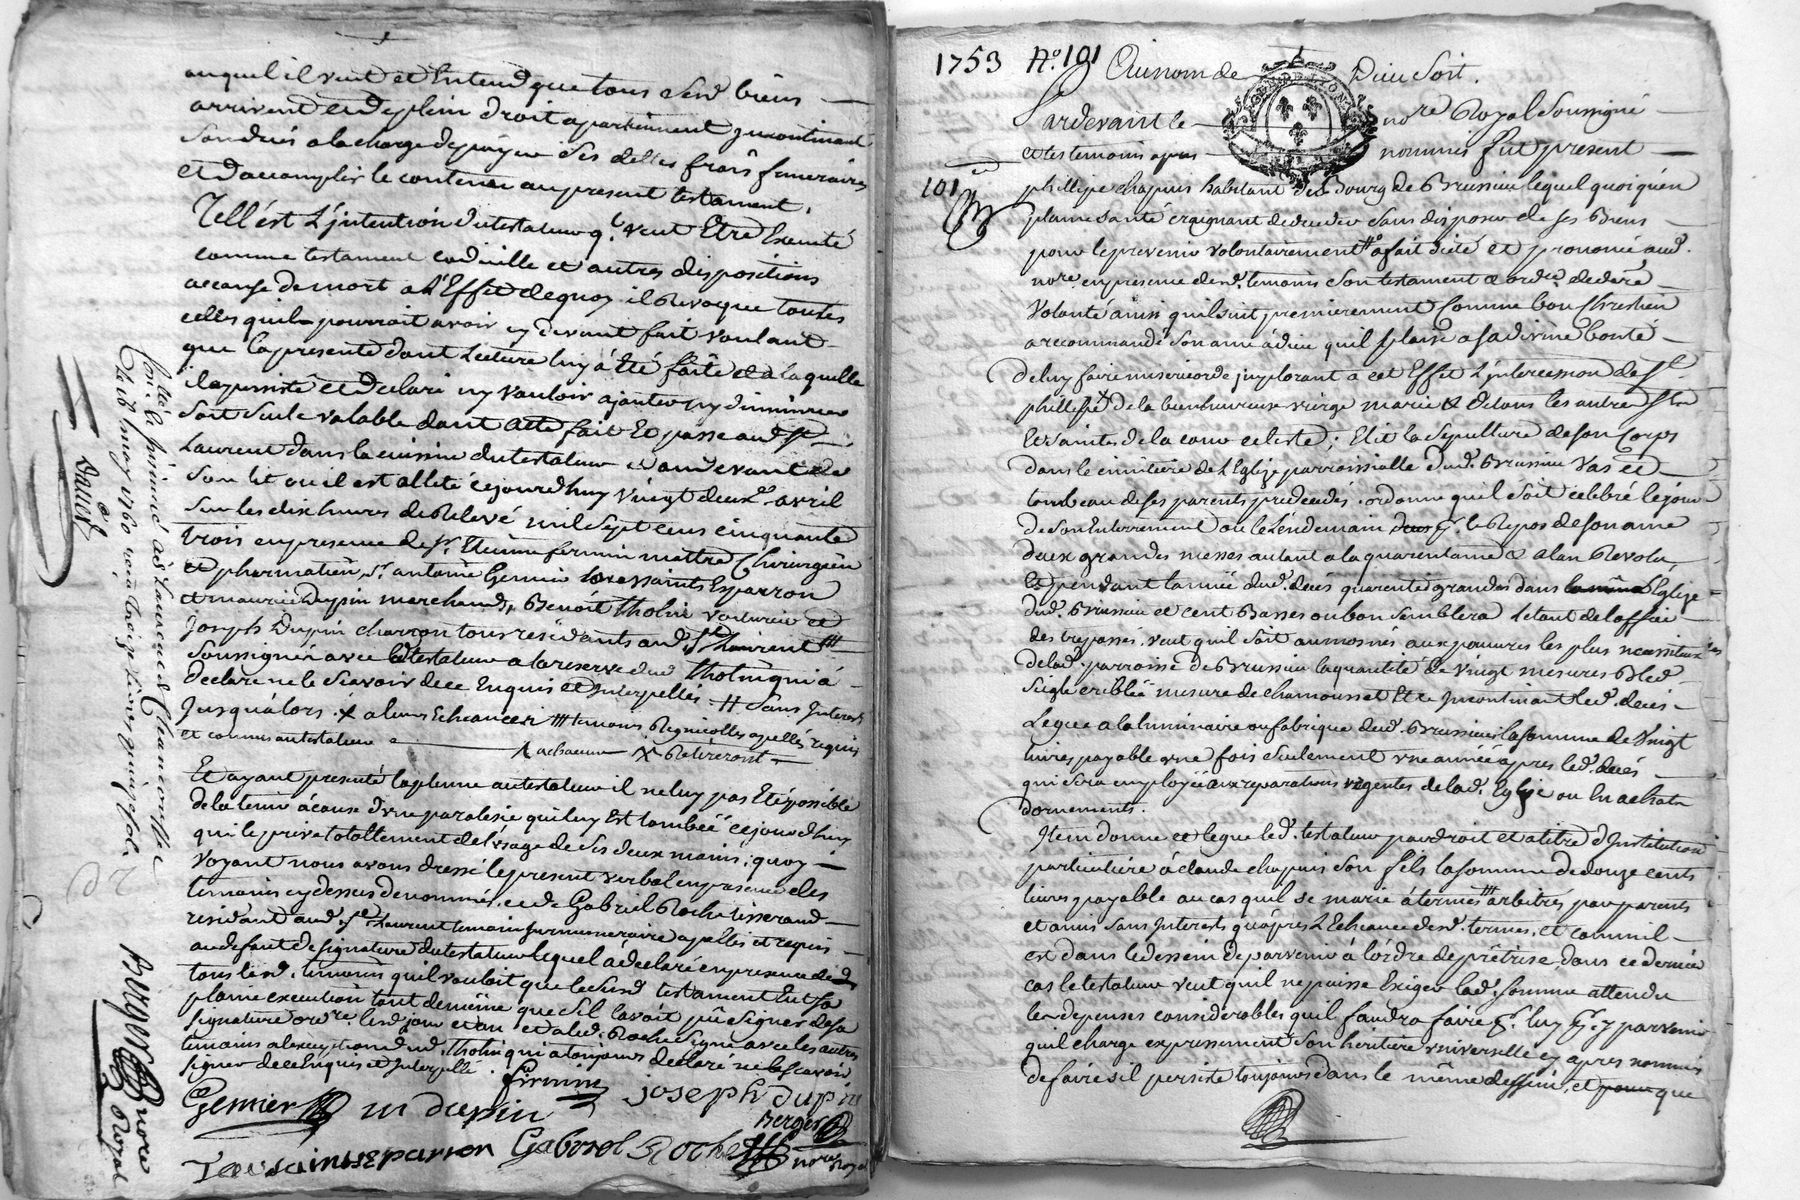 auquel il veut et Entend que tous Sesd. biens
arrivent et de plein droit apartiennent incontinant
Son decès a la charge de payer Ses dettes frais funeraires
et d'accomplir le contenu au present testament.
Tell'ést L'jntention du testateur q.l veut Etre Executé
comme testament codicille et autres dispositions
a cause de mort a L'Effet de quoy il Revoque toutes
celles qu'il pourroit avoir cy devant fait voulant
que la presente dont Lecture luy á été faite et á laquelle
il a persisté et declaré n'y vouloir ajouter ny diminuer
Soit Seule valable dont Acte fait Et passé aud. St
Laurent dans la cuisine du testateur et au devant de
Son lit ou il est allité cejourdhuy vingt deux.e avril
Sur les dix heures de Relevé mil Sept cens cinquante
trois en presence de Sr. Etienne fermin maitre Chirurgien
et pharmatien, Sr. antoine Gemier toussaints Esparron
et maurice Dupin marchands, Benoît tholin voiturier et
Joseph Dupin charron tous residants aud. St Laurent
Soussignés avec le testateur a la reserve dud. tholin qui á
declaré ne le Scavoir de ce Enquis et Interpellé. # Sans Interets
Jusqu'álors. x a leurs Echeances # temoins Regnicolles apellés requis
et connus au testateur
a chacun X Retireront
Et ayant presenté la plume au testateur il ne luy pas Eté possible
de la tenir á cause d'une paralesie qui luy Est tombée cejourdhuy
qui le prive totallement de l'usage de Ses deux mains; quoy
voyant nous avons dressé le present verbal en presence des
temoins cy dessus denommés, et de Gabriel Roche tisserand
residant aud. St Laurent temoin Surnumeraire apellés et requis
au defaut de signature du testateur lequel á declaré en presence de
tous lesd. temoins qu'il vouloit que le Susd. testament Eut Sa
plaine execution tout de même que S'il l'avoit pû signer de Sa
signature ord.re lesd. jour et an et a led. Roche Signé avec les autres
temoins a l'exception dud. tholin qui a toujours declaré ne le Scavoir
signer de ce Enquis et Interpellé.
Gemier m dupin firmin Joseph Dupin
Berger
Toussaint esparron Gabriel Roche no.re Royal
Con.lé à
le 18 may 1760 treize Livres
Dalier
Berger No.re Royal
1753 N.o 101
Au nom de Dieu Soit.
Pardevant le no.re Royal Soussigné
et les temoins apres nommés fut present
101
phillipe chapuis habitant du Bourg de Brussieu lequel quoiqu'en
plaine Santé craignant de deceder Sans disposer de Ses Biens
pour le prevenir volontairement a fait dicté et prononcé aud.
no.re en presence desd. temoins Son testament & ord.ce de dern.re
Volonté ainsi qu'il suit, premierement Comme bon Chrestien
a recommandé Son ame á dieu qu'il plaise a Sa divine bonté
de luy faire misericorde jmplorant a cet Effet L'jntercession de St
phillipe de la bienheureuse vierge marie & de tous les autres Sts
et Saintes de la cour celeste; Elit la Sepulture de Son Corps
dans le cimitiere de L'Eglize parroissialle dud. Brussieu vas et
tombeau de Ses parents predecedés. ordonne qu'il Soit celebré le jour
de Son Enterrement ou le Lendemain p.r le Repos de Son ame
deux grandes messes autant a la quarantaine & a l'an Revolu,
et pendant l'année dud. deces quarente grandes dans L'Eglize
dud. Brussieu et cent Basses ou bon Semblera le tout de l'office
des trepassés. veut qu'il Soit aumosnés aux pauvres les plus necessiteux
de lad. parroisse de Brussieu la quantité de vingt mesures Bled
Seigle criblée mesure de chamousset Et ce Jncontinant led. decès
Legue a la luminaire ou fabrique dud. Brussieu la Somme de Vingt
livres payable une fois Seulement une année apres led. decés
qui Sera employée aux reparations urgentes de lad. Eglize ou En achat
dornements.
Jtem donne et legue led. testateur par droit et a titre d'Jnstitution
particuliere á claude chapuis Son fils la Somme de douze cents
livres payable au cas qu'il Se marie á termes arbitrés par parents
et amis Sans Interets qu'áprés L'Echeance desd. termes, et comme il
est dans le dessein de parvenir á l'órdre de prêtrise, dans ce dernier
cas le testateur veut qu'il ne puisse Exiger lad. Somme attendu
les depenses considerables qu'il faudra faire p.r luy p.r y parvenir
qu'il charge expressement Son héritiere universelle cy apres nommée
de faire s'il persiste toujours dans le même dessein, et pour que